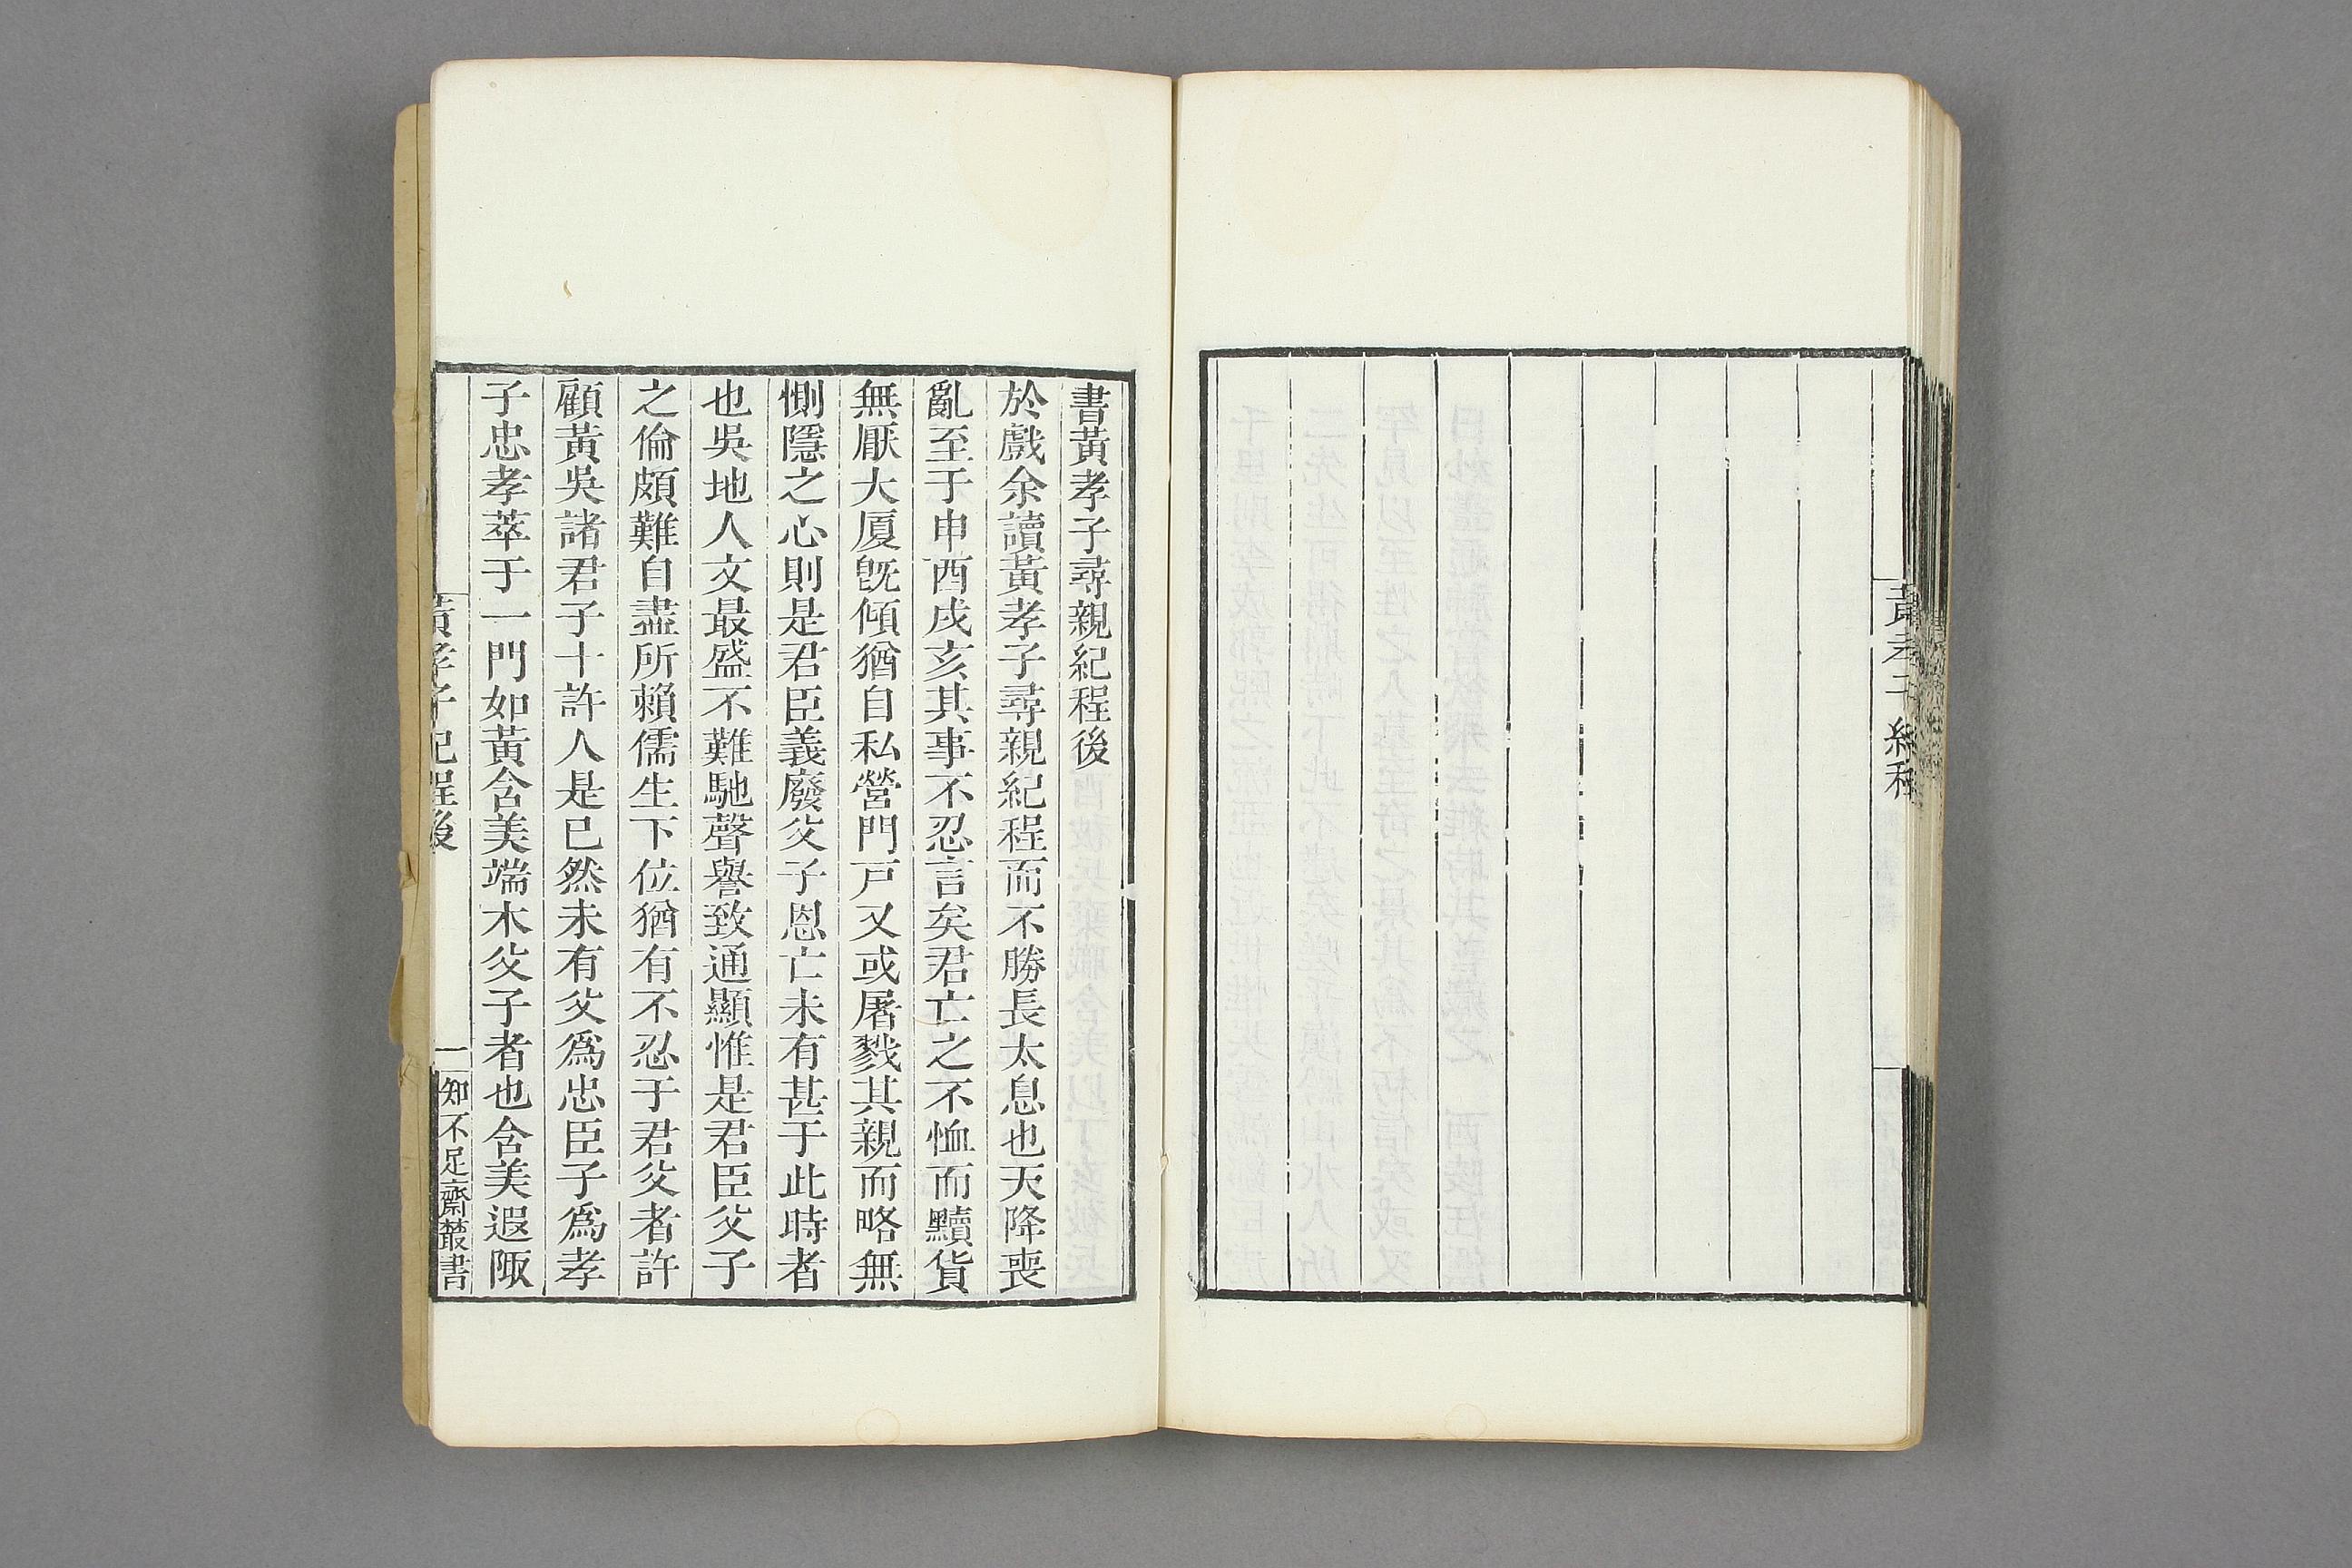 黃孝子紀程
書黃孝子尋親紀程後
於戲余讀黃孝子尋親紀程而不勝長太息也天降喪
亂至于申酉戌亥其事不忍言矣君亡之不恤而黷貨
無厭大厦旣傾猶自私營門戸又或屠戮其親而略無
惻隱之心則是君臣義廢父子恩亡未有甚于此時者
也吳地人文最盛不難馳聲譽致通顯惟是君臣父子
之倫頗難自盡所賴儒生下位猶有不忍于君父者許
顧黃吳諸君子十許人是已然未有父爲忠臣子爲孝
子忠孝萃于一門如黃含美端木父子者也含美遐陬
黃孝子紀程後
一
知不足齋叢書